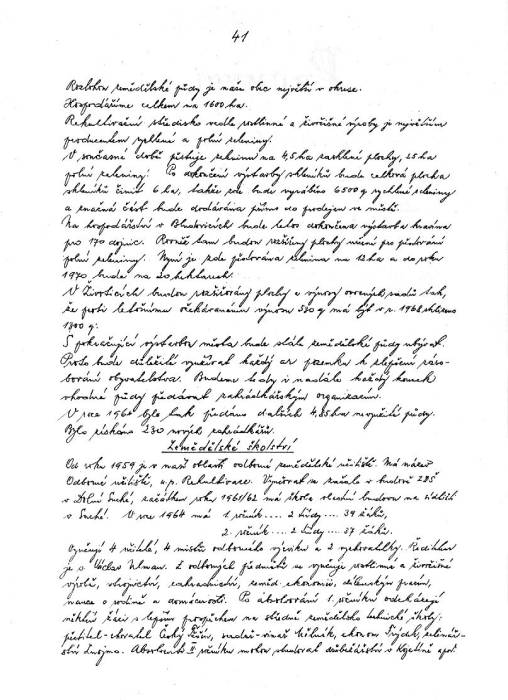 41
Rozlohou zemědělské půdy je naše obec největší v okrese.
Hospodaříme celkem na 1600 ha.
Rekultivační středisko vedle rostlinné a živočišné výroby je největším
producentem rychlené a polní zeleniny.
V současné době pěstuje zeleninu na 4,5 ha zasklené plochy, 25 ha
polní zeleniny. Po dokončení výstavby skleníků bude celková plocha
skleníků činit 6 ha, takže zde bude vyráběno 6500 q rychlené zeleniny
a značná část bude dodávána přímo do prodejen ve městě.
Na hospodářství v Bludovicích bude letos dokončena výstavba kravína
pro 170 dojnic. Rovněž tam budou rozšířeny plochy určené pro pěstování
polní zeleniny. Nyní je zde pěstována zelenina na 12 ha a do roku
1970 bude na 20 hektarech.
V Životicích budou rozšiřovány plochy a výnosy ovocných sadů tak,
že proti letošnímu očekávanému výnosu 580 q má být v r. 1968 sklizeno
1800 q.
S pokračující výstavbou města bude stále zemědělské půdy ubývat.
Proto bude důležité využívat každý ar pozemku k zlepšení záso-
bování obyvatelstva. Budeme tedy i nadále každý kousek
vhodné půdy předávat zahrádkářským organizacím.
V roce 1960 bylo tak předáno dalších 4,85 ha nevyužité půdy.
Bylo získáno 230 nových zahrádkářů.
Zemědělské školství
Od roku 1959 je v naší oblasti odborné zemědělské učiliště. Má název
Odborné učiliště, n.p. Rekultivace. Vyučovat se začalo v budově ZDŠ
v Dolní Suché, začátkem roku 1961/62 má škola vlastní budovu na sídlišti
v Suché. V roce 1964 má 1. ročník .... 2 třídy .... 39 žáků,
2. ročník .... 2 třídy .... 37 žáků.
Vyučují 4 učitelé, 4 mistři odborného výcviku a 2 vychovatelky. Ředitelem
je s. Václav Ulman. Z odborných předmětů se vyučuje rostlinné a živočišné
výrobě, strojnictví, zahradnictví, zeměd. ekonomii, dílenským pracím,
nauce o rodině a domácnosti. Po absolvování 1. ročníku odcházejí
někteří žáci s lepším prospěchem na středně zemědělsko technické školy:
pěstitel-chovatel Český Těšín, sadař-vinař Mělník, ekonom Frýdek, zelinář-
ství Znojmo. Absolventi II. ročníku mohou studovat drůbežářství v Kojetíně apod.